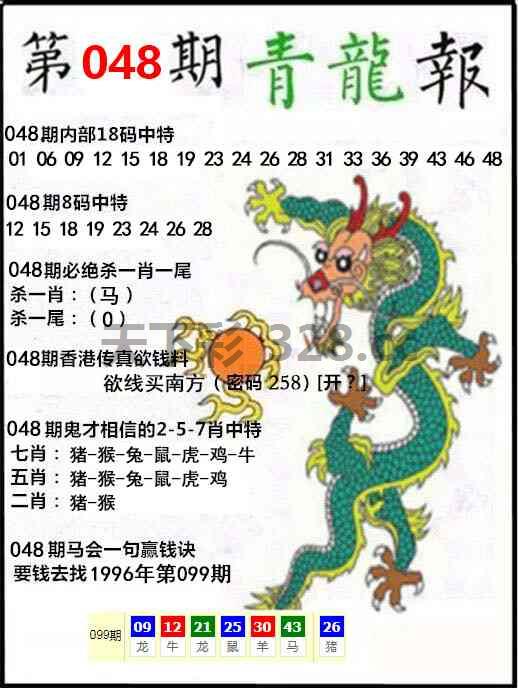 第 048 期 青龍報
048期内部18码中特
01 06 09 12 15 18 19 23 24 26 28 31 33 36 39 43 46 48
048期8码中特
12 15 18 19 23 24 26 28
048期必绝杀一肖一尾
杀一肖：(马)
杀一尾：(0)
048期香港传真欲钱料
欲线买南方（密码 258）[开？]
048期鬼才相信的2-5-7肖中特
七肖：猪-猴-兔-鼠-虎-鸡-牛
五肖：猪-猴-兔-鼠-虎-鸡
二肖：猪-猴
048期马会一句赢钱诀
要钱去找1996年第099期
099期 09 12 21 25 30 43 26
龙 牛 龙 鼠 羊 马 猪